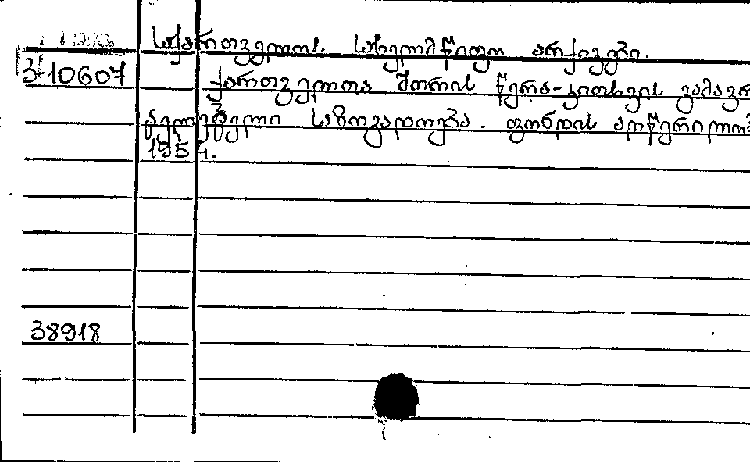 საქართველოს სახელმწიფო არქივები.
3/10607 ქართველთა შორის წერა-კითხვის გამავრ
ცელებელი საზოგადოება. ფონდის აღწერილობ
195
38918